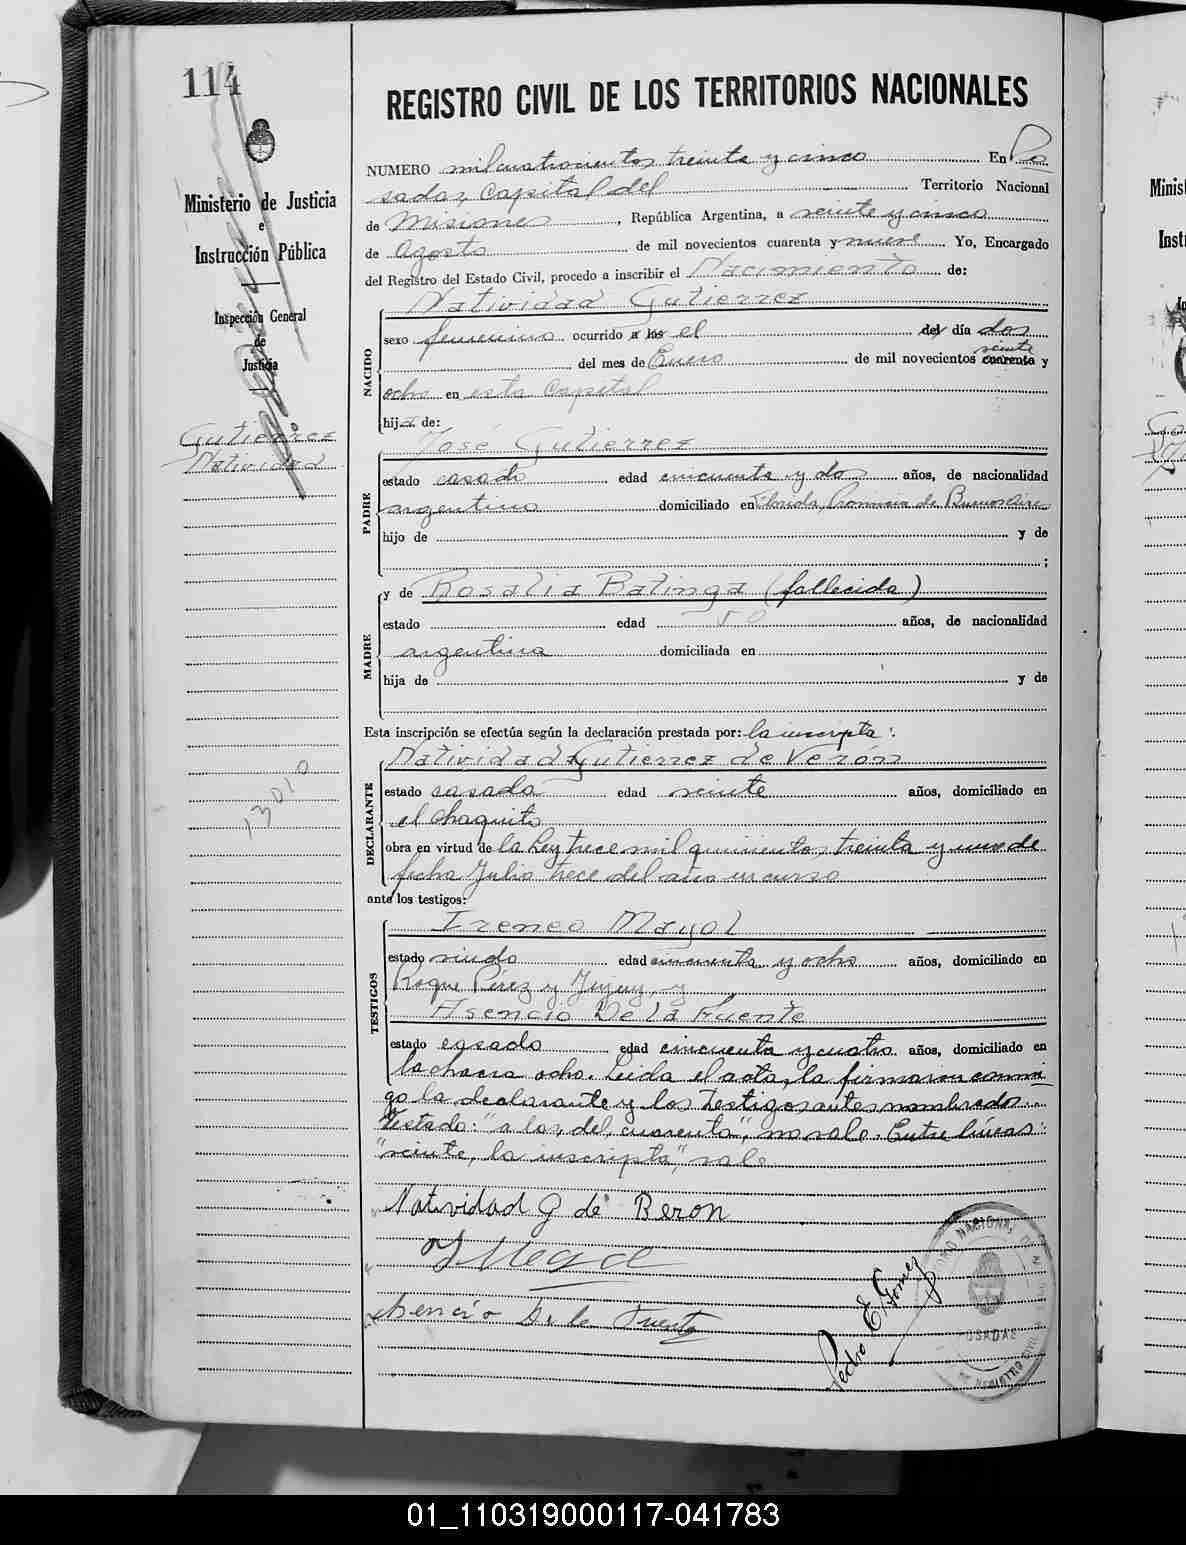 114
REGISTRO CIVIL DE LOS TERRITORIOS NACIONALES
Ministerio de Justicia
e
Instrucción Pública
Inspección General
de
Justicia
Gutierrez
Natividad
NUMERO mil cuatrocientos treinta y cinco En Po
sadas, Capital del Territorio Nacional
de Misiones, República Argentina, a veinte y cinco
de Agosto de mil novecientos cuarenta y nueve Yo, Encargado
del Registro del Estado Civil, procedo a inscribir el Nacimiento de:
NACIDO
Natividad Gutierrez
sexo femenino ocurrido a las el del día dos
veinte
del mes de Enero de mil novecientos cuarenta y
ocho en esta Capital
hija de:
PADRE
José Gutierrez
estado casado edad cincuenta y dos años, de nacionalidad
argentino domiciliado en Florida, Provincia de Buenos Aires
hijo de y de
;
MADRE
y de Rosalia Batinga (fallecida)
estado edad años, de nacionalidad
argentina domiciliada en
hija de y de
Esta inscripción se efectúa según la declaración prestada por: la inscripta:
DECLARANTE
Natividad Gutierrez de Verón
estado casada edad veinte años, domiciliado en
el Chaquito
obra en virtud de la Ley trece mil quinientos treinta y uno de
fecha Julio trece del año en curso
13010
ante los testigos:
TESTIGOS
Ireneo Mayol
estado viudo edad cincuenta y ocho años, domiciliado en
Roque Pérez y Jujuy, y
Asencio De la Fuente
estado casado edad cincuenta y cuatro años, domiciliado en
la chacra ocho. Leida el acta, la firmaron conmi
go la declarante y los testigos antes nombrados.
Testado: "a las, del, cuarenta", no vale. Entre líneas:
"veinte, la inscripta", vale
Natividad G de Beron
Asencio De la Fuente
Pedro E. Gomez
POSADAS
01_110319000117-041783